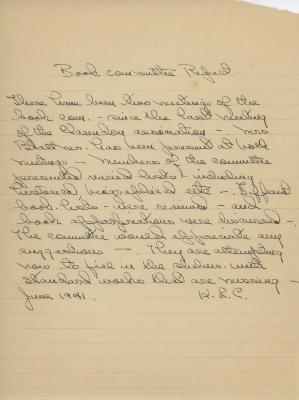 Book committee Report.
There have been two meetings of the
book com. - since the last meeting
of the Clarendon association -. Mrs
has been present at both
meetings - Members of the committee
presented varied lists - including
historical biographical etc -. Different
book lists - were reviewed - and
book appropriations were discussed -.
The committee would appreciate any
suggestions -. They are attempting
now to fill in the shelves with
standard works that are missing -
June 1941. H. L. C.